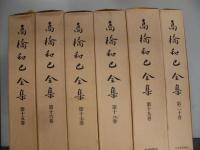 高橋和巳全集
第十五巻
高橋和巳全集
第十六巻
高橋和巳全集
第十七巻
高橋和巳全集
第十八巻
高橋和巳全集
第十九巻
高橋和巳全集
第二十巻